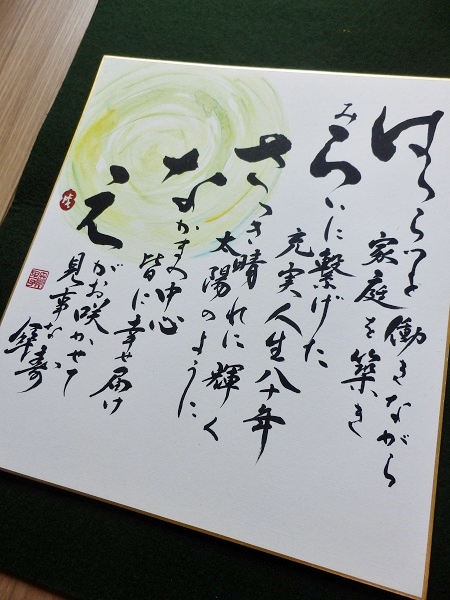 はつらつと働きながら
家庭を築き
みらいに繋げた
充実人生八十年
さつき晴れに輝く
太陽のように
なかまの中心
皆に幸せ届け
えがお咲かせて
見事な傘寿